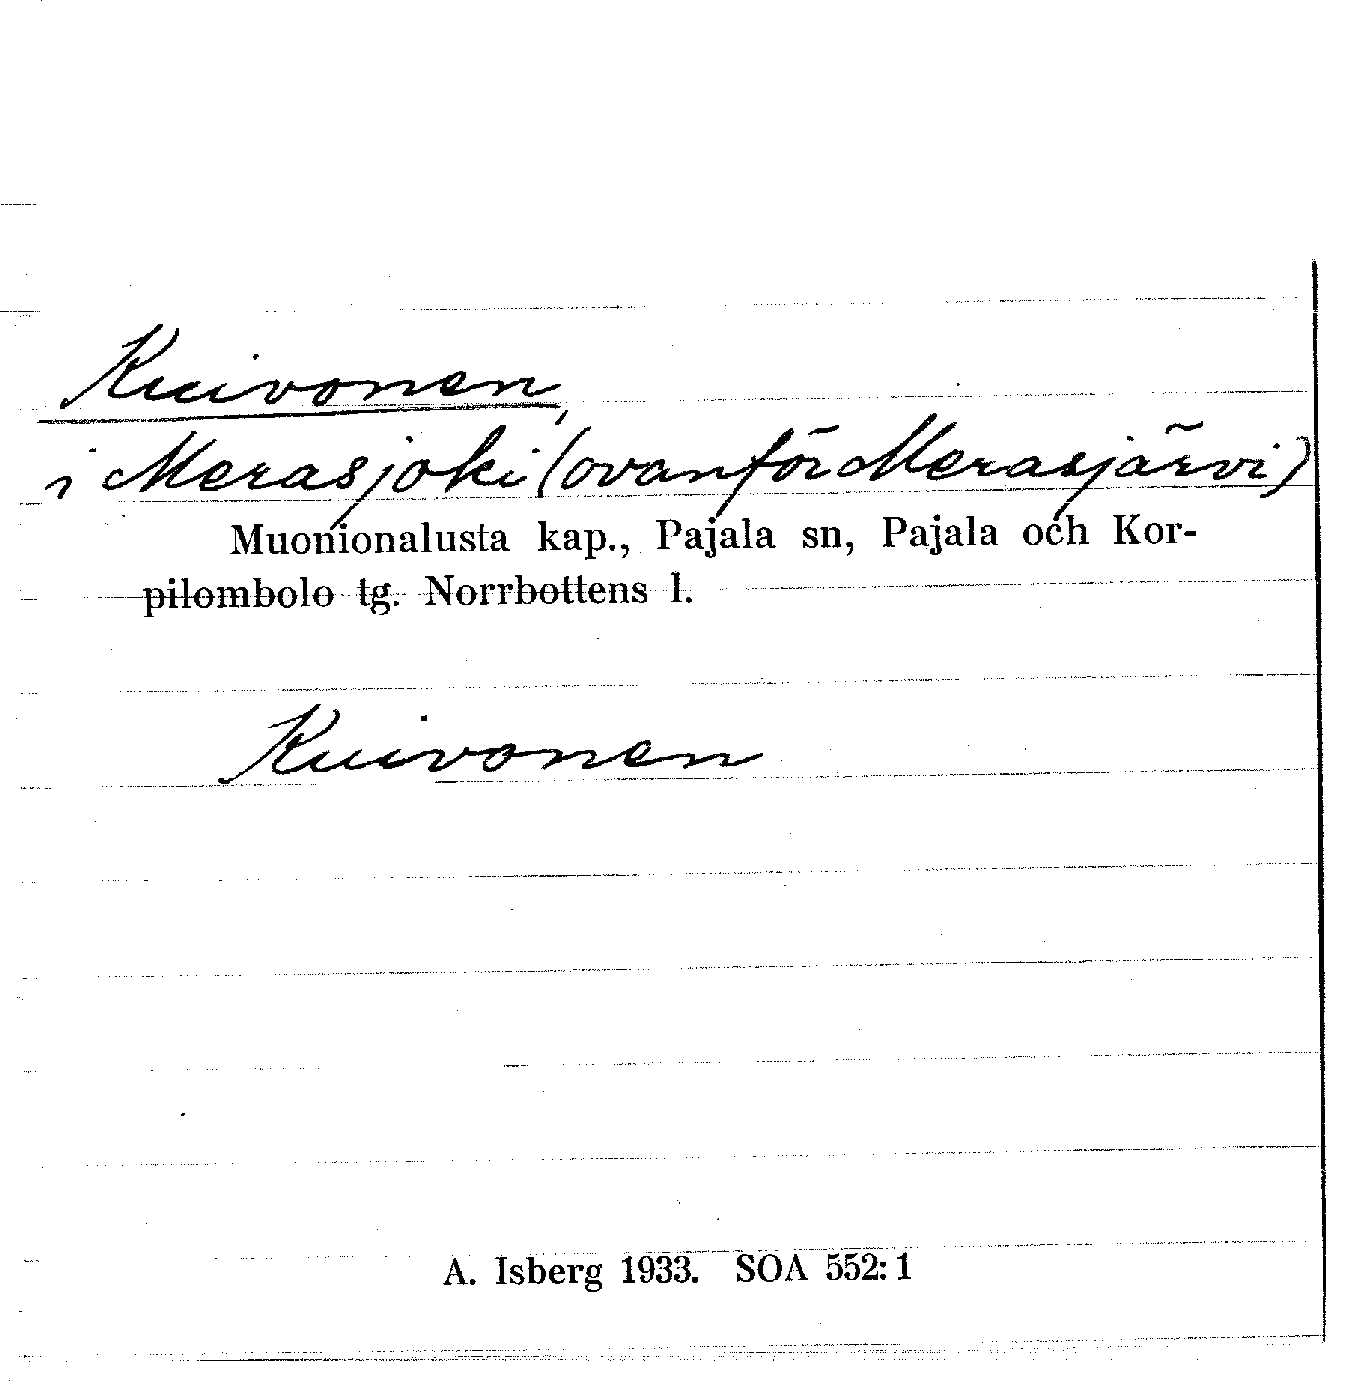 Kuivonen,
i Merasjoki (ovanför Merasjärvi)
Muonionalusta kap., Pajala sn, Pajala och Kor-
pilombolo tg. Norrbottens l.
Kuivonen
A. Isberg 1933. SOA 552: 1